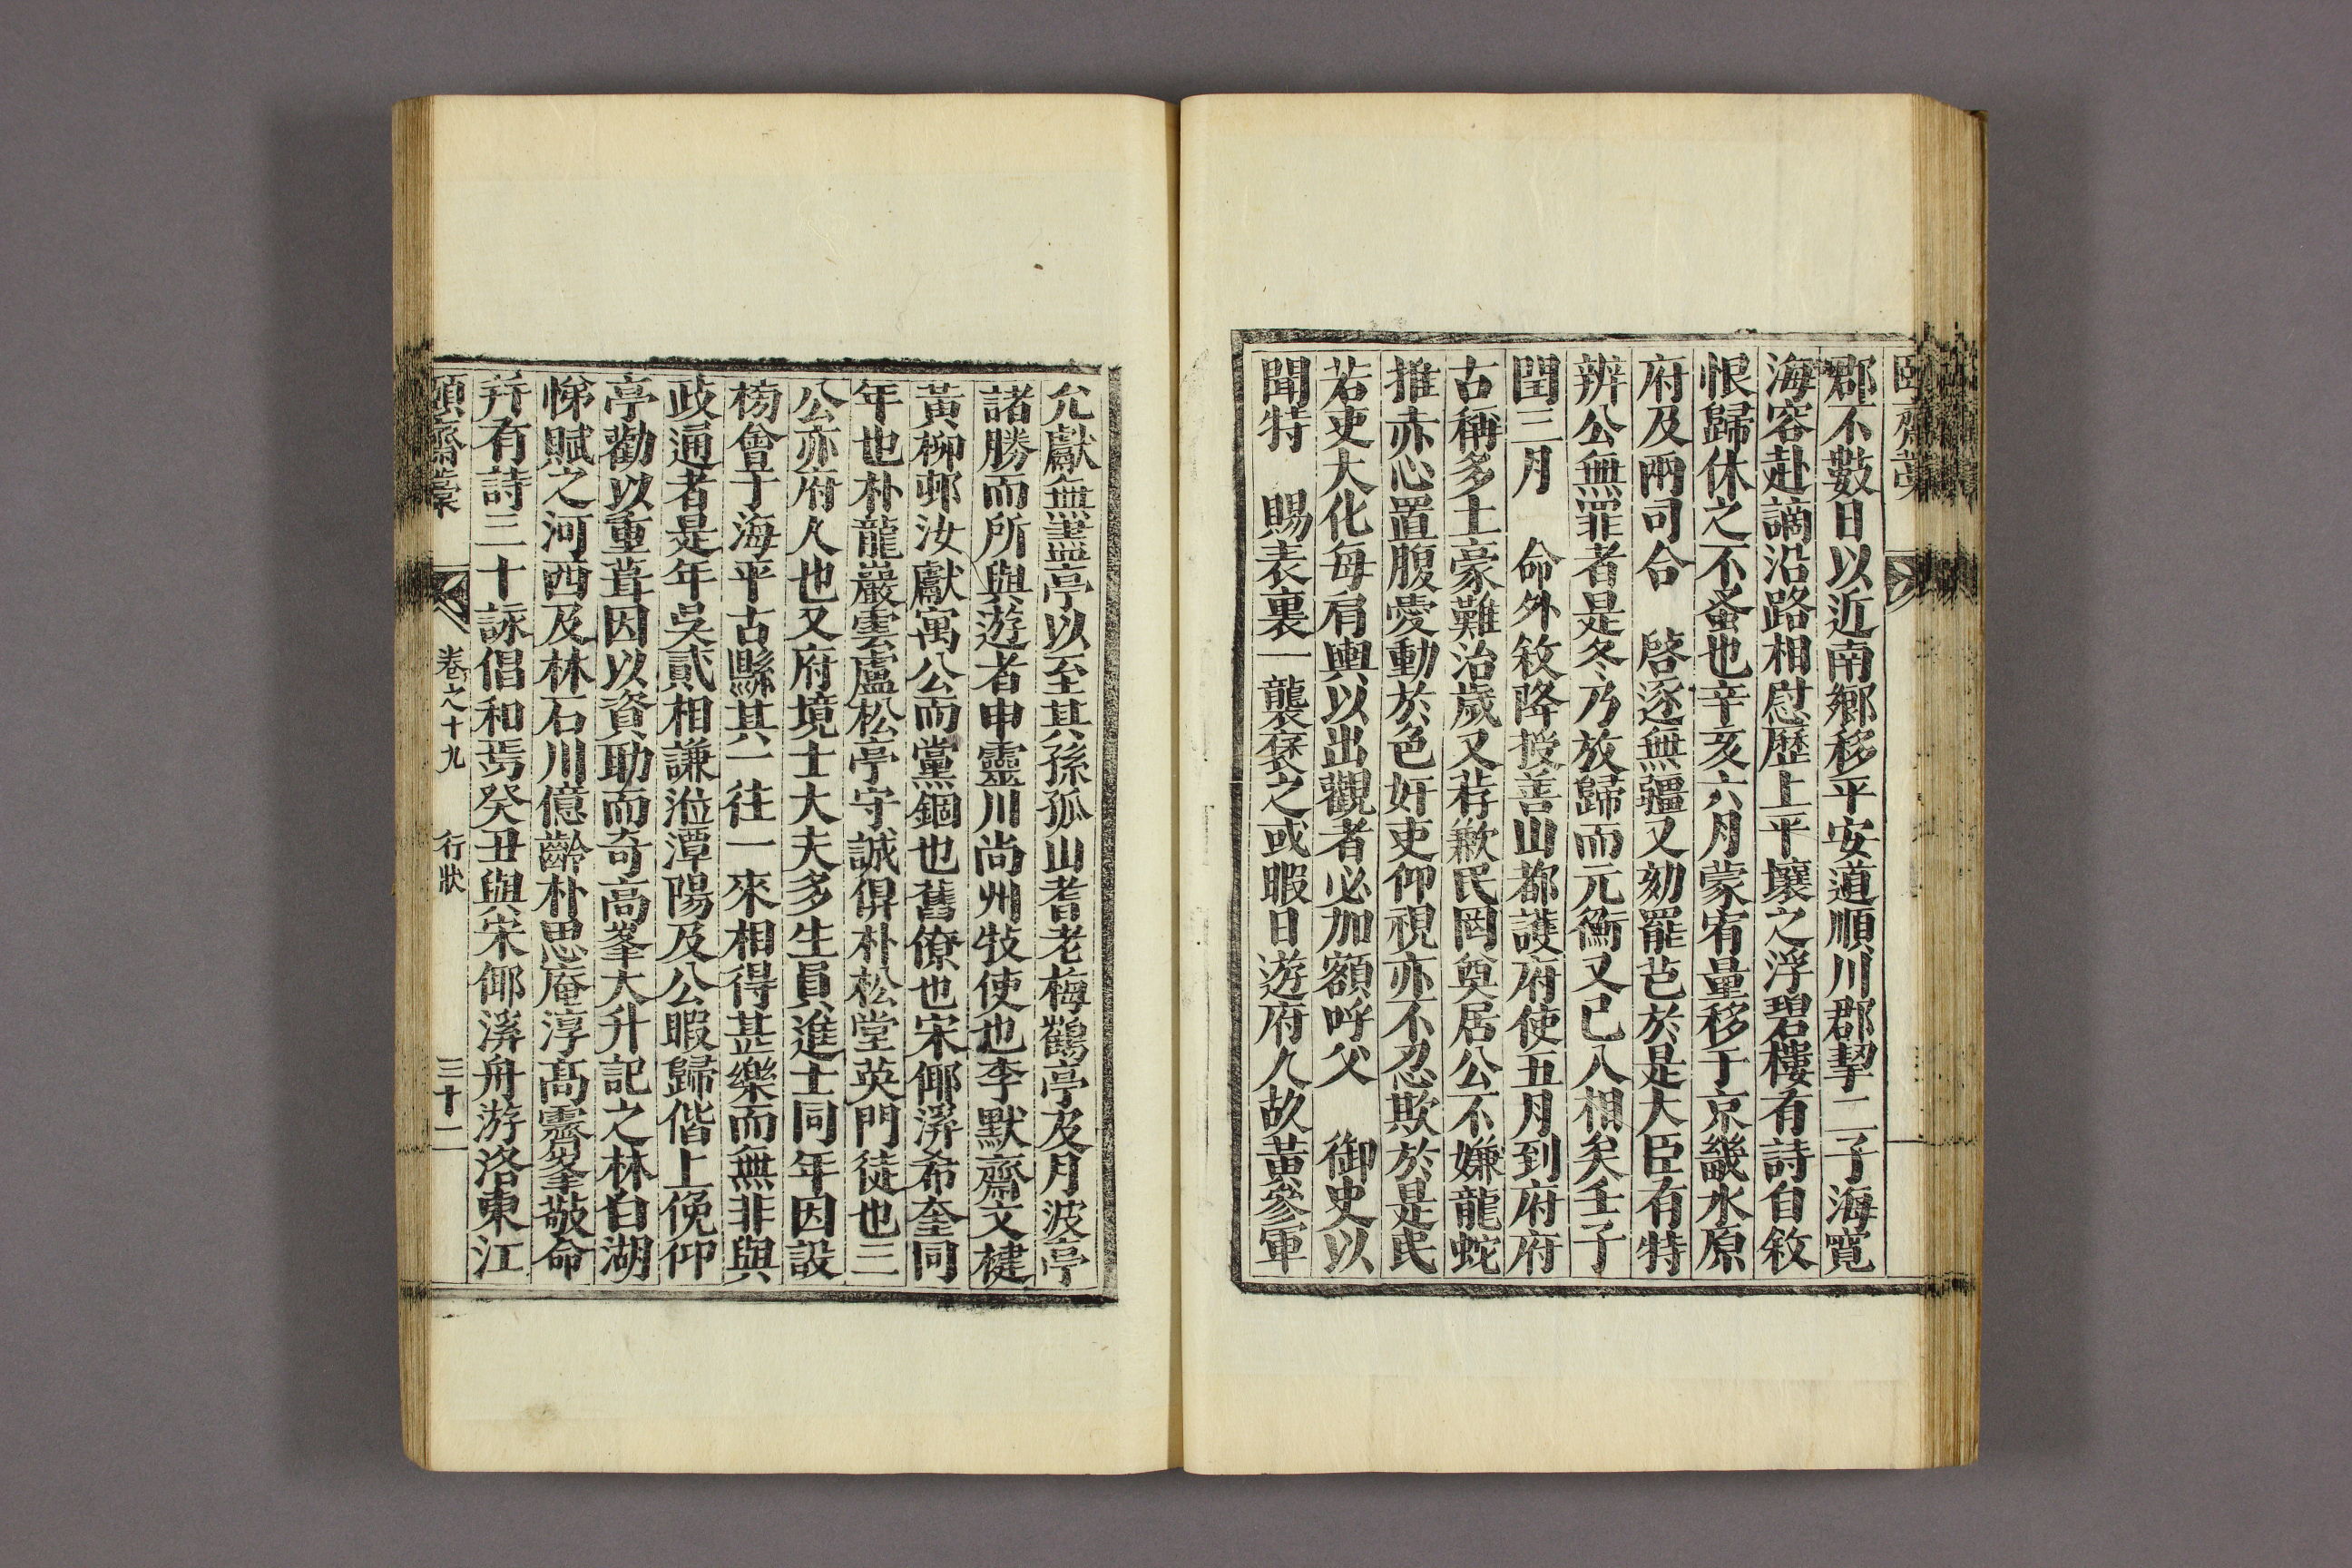 郡不數日以近南鄉移平安道順川郡挈二子海寬
海容赴謫沿路相慰歷上平壤之浮碧樓有詩自敘
恨歸休之不蚤也辛亥六月蒙宥量移于京畿水原
府及兩司合 啓逐無疆又劾罷芑於是大臣有特
辨公無罪者是冬乃放歸而元衡又已入相矣壬子
閏三月 命外敘降授善山都護府使五月到府府
古稱多士豪難治歲又荐歉民罔奠居公不嫌龍蛇
推赤心置腹愛動於色奸吏仰視亦不忍欺於是民
若吏大化每肩輿以出觀者必加額呼父 御史以
聞特 賜表裏一襲褒之或暇日遊府人故黃參軍
允獻無盡亭以至其孫孤山耆老梅鶴亭及月波亭
諸勝而所與遊者申靈川尚州牧使也李默齋文楗
黃柳邨汝獻寓公而黨錮也舊僚也宋倻溪希奎同
年也朴龍巖雲盧松亭守誠俱朴松堂英門徒也三
公亦府人也又府境士大夫多生員進士同年因設
榜會于海平古縣其一往一來相得甚樂而無非與
政通者是年吳貳相謙涖潭陽及公暇歸偕上俛仰
亭勸以重葺因以資助而奇高峯大升記之林白湖
悌賦之河西及林石川億齡朴思庵淳高霽峯敬命
幷有詩三十詠倡和焉癸丑與宋倻溪舟游洛東江
頤齋藁 卷之十九 行狀 三十二